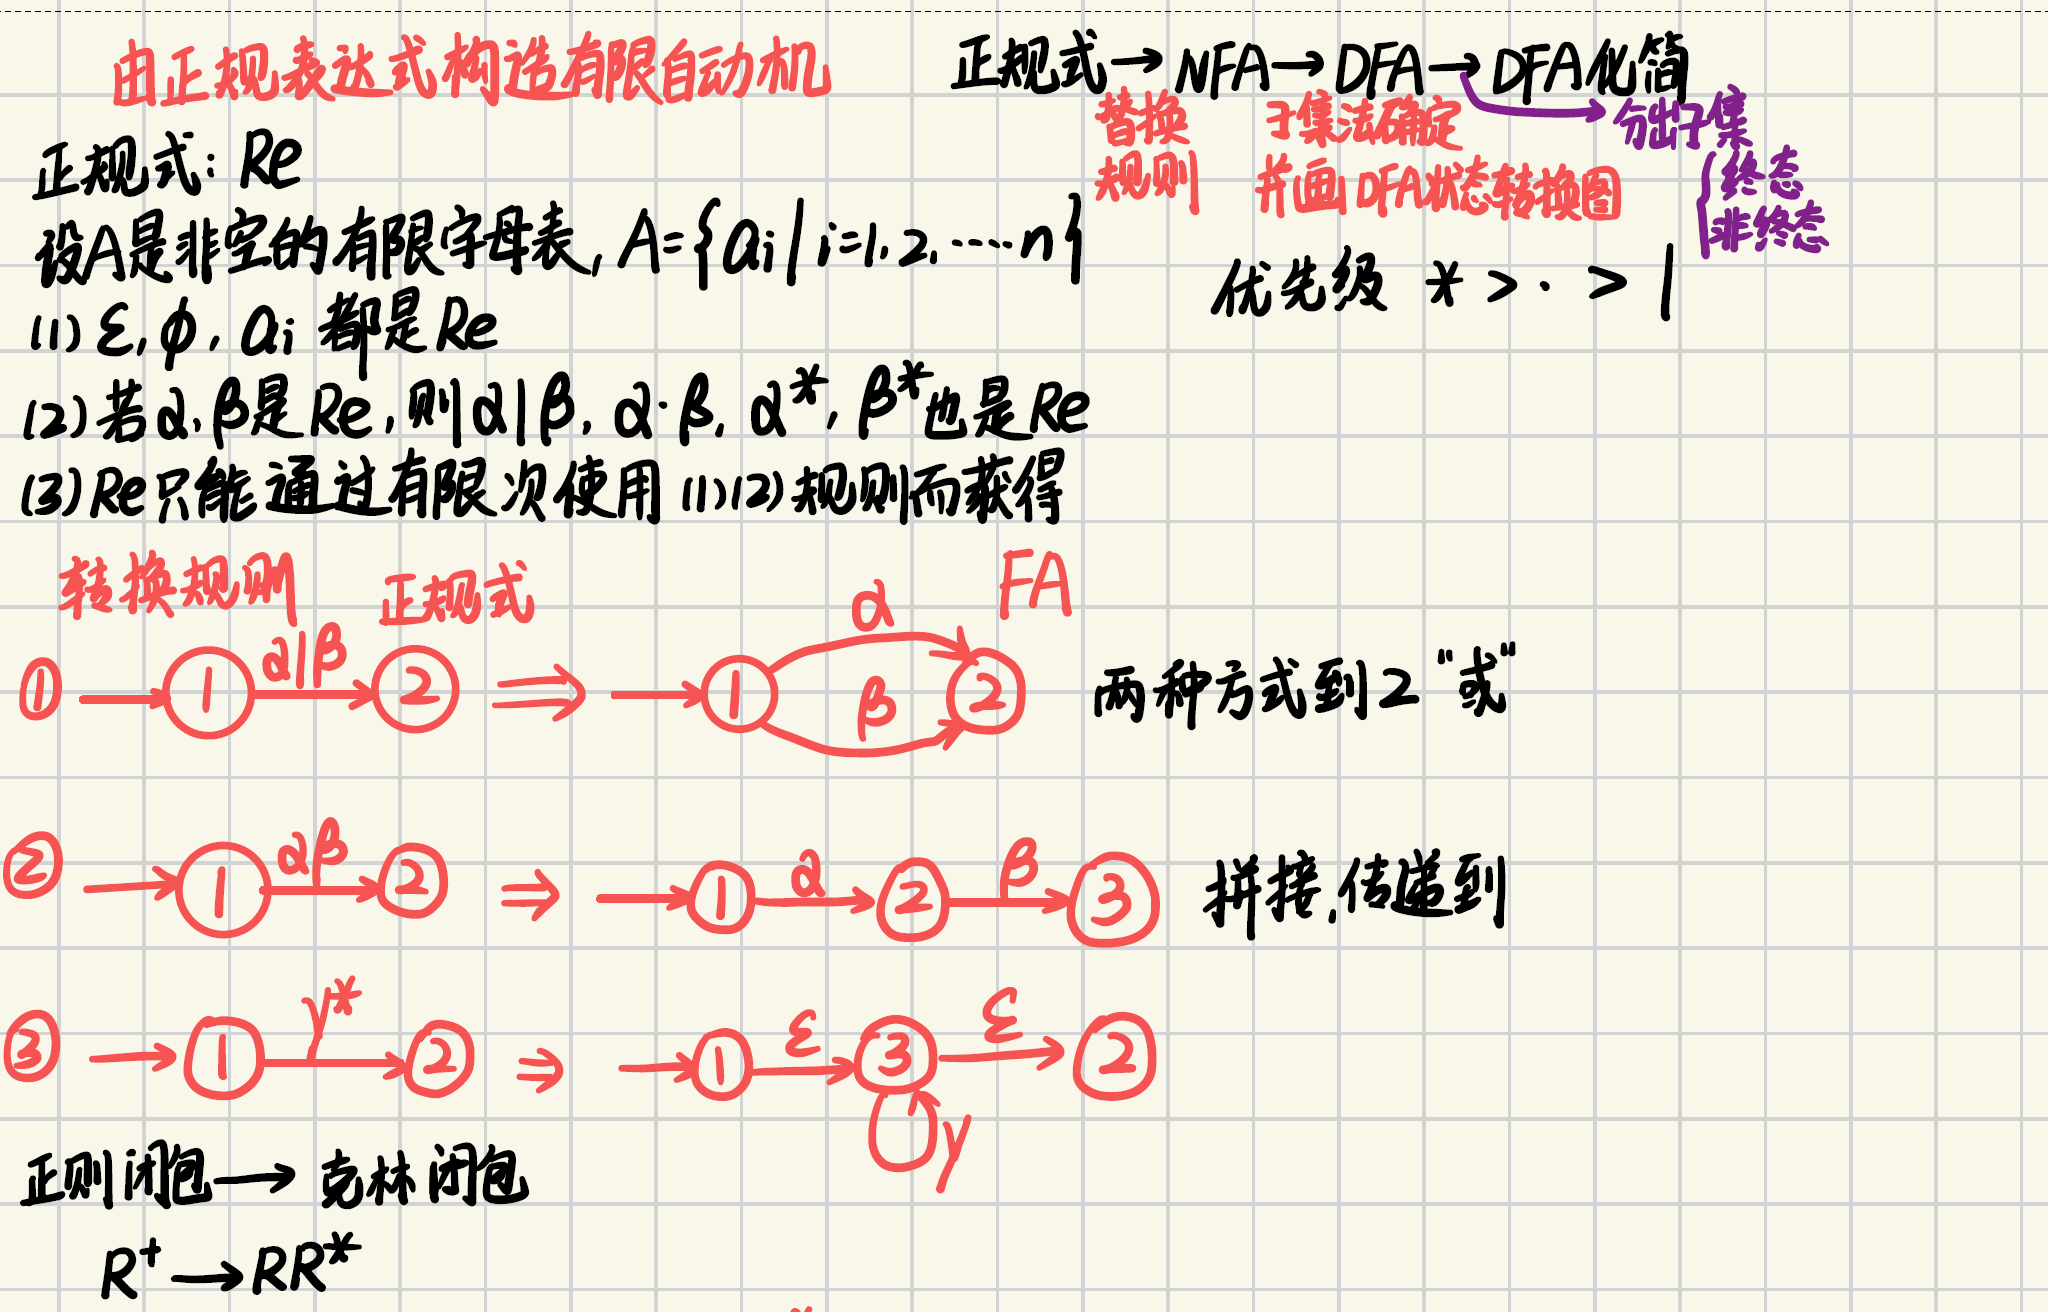 由正规表达式构造有限自动机
正规式→NFA→DFA→DFA化简
替换规则
子集法确定
并画DFA状态转换图
分出子集
{终态
非终态
优先级 * > · > |
正规式: Re
设A是非空的有限字母表, A={ai | i=1,2,……n}
(1) ε, φ, ai 都是Re
(2) 若α, β是Re, 则α|β, α·β, α*, β*也是Re
(3) Re只能通过有限次使用(1)(2)规则而获得
转换规则 正规式 FA
① → 1 α|β 2 ⇒ → 1 α β 2 两种方式到2 "或"
② → 1 αβ 2 ⇒ → 1 α 2 β 3 拼接,传递到
③ → 1 γ* 2 ⇒ → 1 ε 3 ε 2
γ
正则闭包 → 克林闭包
R⁺ → RR*